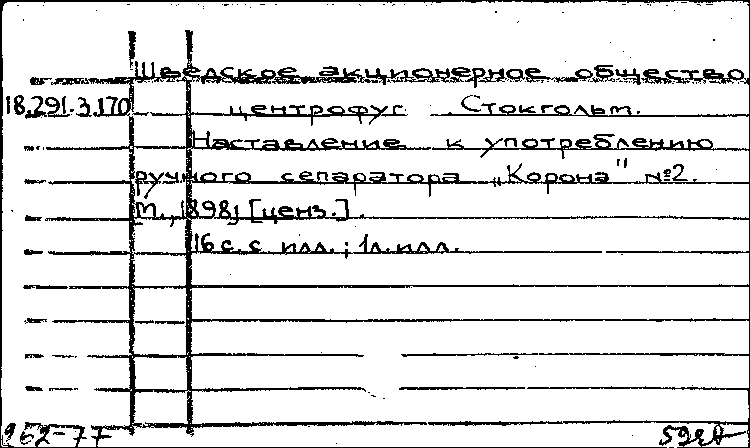 Шведское акционерное общество
18.291.3.170 центрофуг Стокгольм.
Наставление к употреблению
ручного сепаратора „Корона" №2.
М., 1898, [ценз.].
16 с. с илл.; 1 л. илл.
262-77